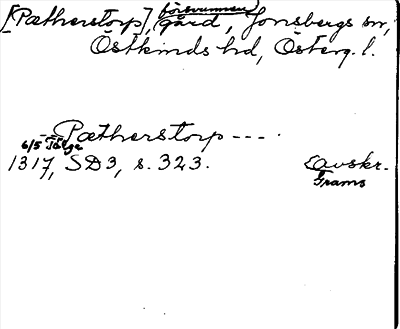 [Pætherstorp], försvunnen gård, Jonsbergs sn,
Östkinds hd, Österg. l.
--Pætherstorp ---.
6/5 Tälge
1317, SD3, s. 323. avskr.
Grams